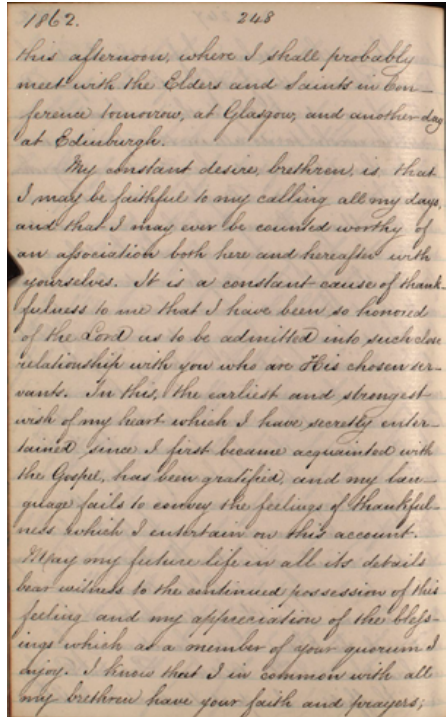 1862. 248
this afternoon, where I shall probably
meet with the Elders and Saints in Con-
ference tomorrow, at Glasgow, and another day
at Edinburgh.
My constant desire, brethren, is, that
I may be faithful to my calling all my days,
and that I may ever be counted worthy of
an association both here and hereafter with
yourselves. It is a constant cause of thank-
fulness to me that I have been so honored
of the Lord as to be admitted into such close
relationship with you who are His chosen ser-
vants. In this, the earliest and strongest
wish of my heart which I have secretly enter-
tained, since I first became acquainted with
the Gospel, has been gratified, and my lan-
guage fails to convey the feelings of thankful-
ness which I entertain on this account.
May my future life in all its details
bear witness to the continued possession of this
feeling and my appreciation of the bless-
ings which as a member of your quorum I
enjoy. I know that I in common with all
my brethren have your faith and prayers;